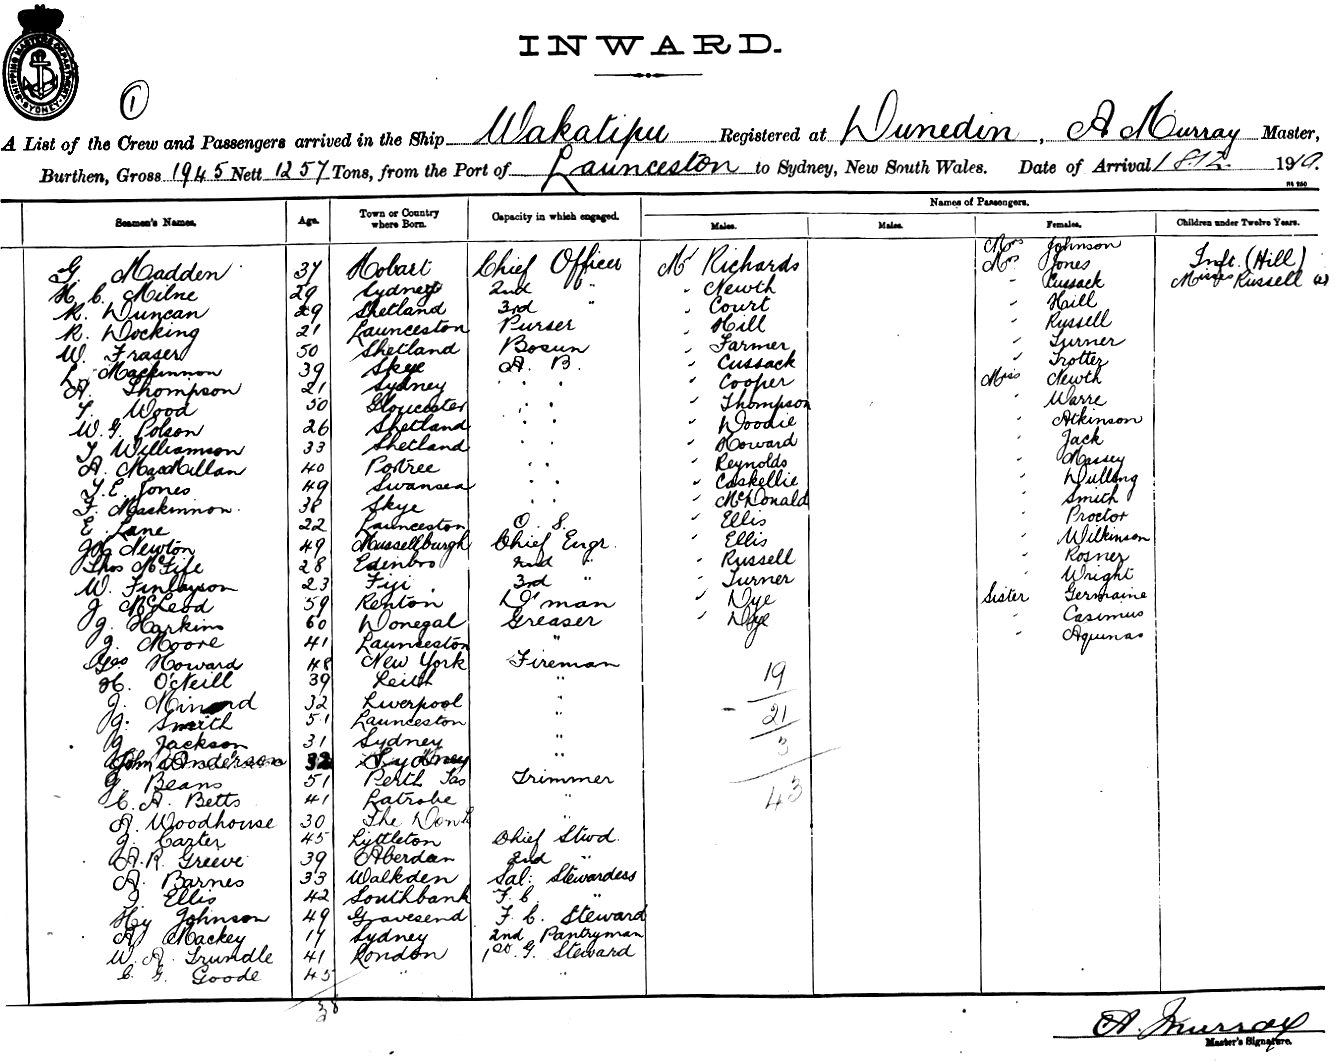 SHIPPING MASTERS DEPARTMENT SYDNEY
INWARD.
1
A List of the Crew and Passengers arrived in the Ship Wakatipu Registered at Dunedin, A Murray Master,
Burthen, Gross 1945 Nett 1257 Tons, from the Port of Launceston to Sydney, New South Wales. Date of Arrival 1910.
Names of Passengers.
Seamen's Names. Age. Town or Country where Born. Capacity in which engaged. Males. Males. Females. Children under Twelve Years.
Mrs Johnson
G. Madden 37 Hobart Chief Officer Mr Richards Mrs Jones Inft. (Hill)
H. C. Milne 29 Sydney 2nd " " Newth " Cussack Misses Russell (2)
R. Duncan 29 Shetland 3rd " " Court " Hill
R. Docking 21 Launceston Purser " Hill " Russell
W. Fraser 50 Shetland Bosun " Farmer " Turner
L. Mackinnon 39 Skye A. B. " Cussack " Trotter
A. Thompson 21 Sydney " " " Cooper Miss Newth
T. Wood 50 Gloucester " " " Thompson " Warre
W. G. Polson 26 Shetland " " " Woodie " Atkinson
T. Williamson 33 Shetland " " " Howard " Jack
A. MacMillan 40 Portree " " " Reynolds " Massey
T. E. Jones 49 Swansea " " " Caskellie " Dulling
F. Mackinnon 38 Skye " " " McDonald " Smith
E. Lane 22 Launceston O. S. " Ellis " Proctor
Newton 49 Mussellburgh Chief Engr. " Ellis " Wilkinson
Thos McFife 28 Edinbro 2nd " " Russell " Rosner
W. Finlayson 23 Fiji 3rd " " Turner " Wright
J. McLeod 59 Renton D'man " Nye Sister Germaine
J. Harkins 60 Donegal Greaser " Nye " Casimus
J. Moore 41 Launceston " " Aquinas
Geo Howard 48 New York Fireman
H. O'Neill 39 Leith "
J. 32 Liverpool "
J. Smith 51 Launceston "
J. Jackson 31 Sydney "
John Anderson 32 Sydney "
J. Beans 51 Perth Tas Trimmer
C. A. Betts 41 Latrobe "
A. Woodhouse 30 The "
J. Carter 45 Lyttleton Chief Stwd.
A. R. Greeve 39 Aberdan 2nd "
A. Barnes 33 Walkden Sal: Stewardess
J. Ellis 42 Southbank F. C. "
Hy Johnson 49 Gravesend F. C. Steward
A. Mackey 17 Sydney 2nd Pantryman
W. A. Trundle 41 London 1st G. Steward
C. G. Goode 45 " "
19
21
3
43
38
A. Murray
Master's Signature.